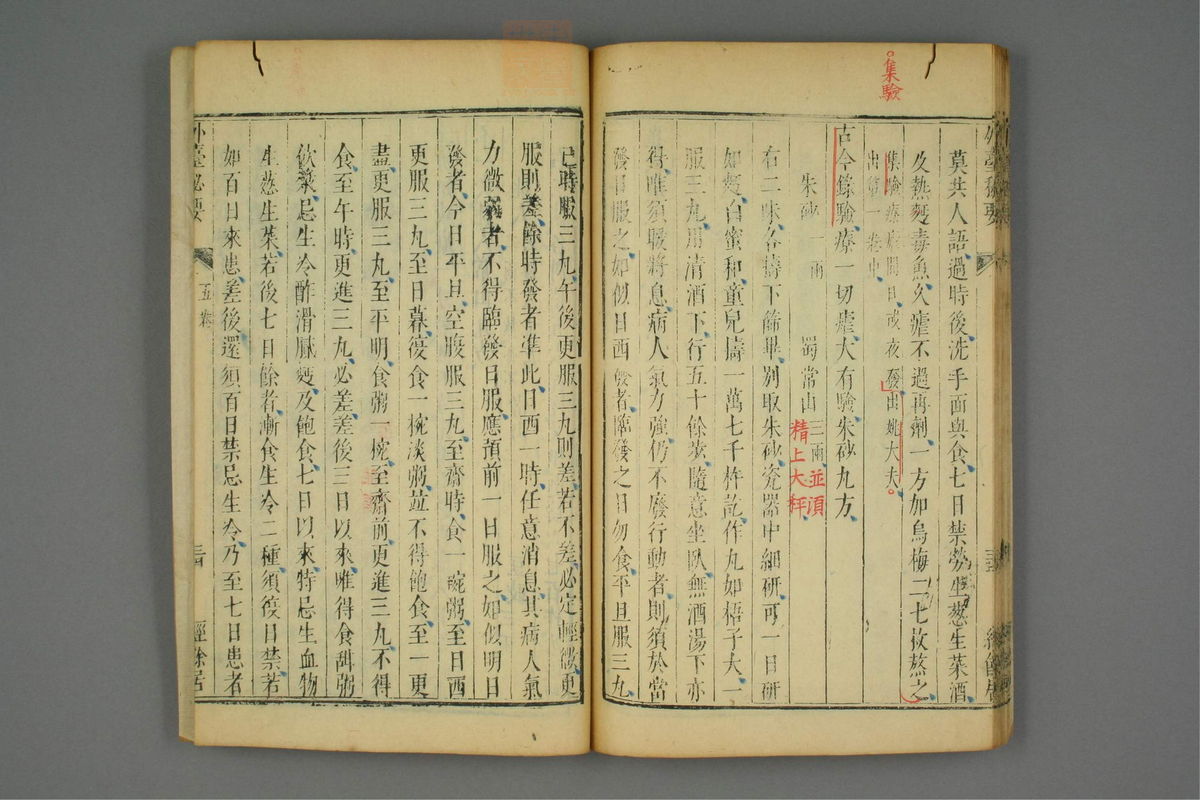 集驗
莫共人語過時後洗手面與食七日禁勞生葱生菜酒
及熱麪毒魚久瘧不過再劑一方如烏梅二七枚蒸之
集驗療瘧間日或夜發出姚大夫
出第一卷中
古今錄驗療一切瘧大有驗朱砂丸方
朱砂一兩 蜀常山三兩並須精上大秤
右二味各擣下篩畢別取朱砂瓷器中細研可一日研
如麪白蜜和童兒擣一萬七千杵訖作丸如梧子大一
服三丸用清酒下行五十餘步隨意坐臥無酒湯下亦
得唯須暖將息病人氣力強仍不廢行動者則須於當
發日服之如似日西發者臨發之日勿食平旦服三丸
已時服三丸午後更服三丸則差若不差必定輕欲更
服則差餘時發者準此日西一時任意消息其病人氣
力微弱者不得臨發日服應預前一日服之如似明日
發者今日平旦空腹服三丸至齋時食一碗粥至日西
更服三丸至日暮後食一椀淡粥並不得飽食至一更
盡更服三丸至平明食粥一椀至齋前更進三丸不得
食至午時更進三丸必差差後三日以來唯得食甜粥
飲漿忌生冷酢滑膩麪及飽食七日以來特忌生血物
生葱生菜若後七日餘者漸食生冷二種須復日禁若
如百日來患差後還須百日禁忌生冷乃至七日患者
外臺祕要
五卷
經餘居